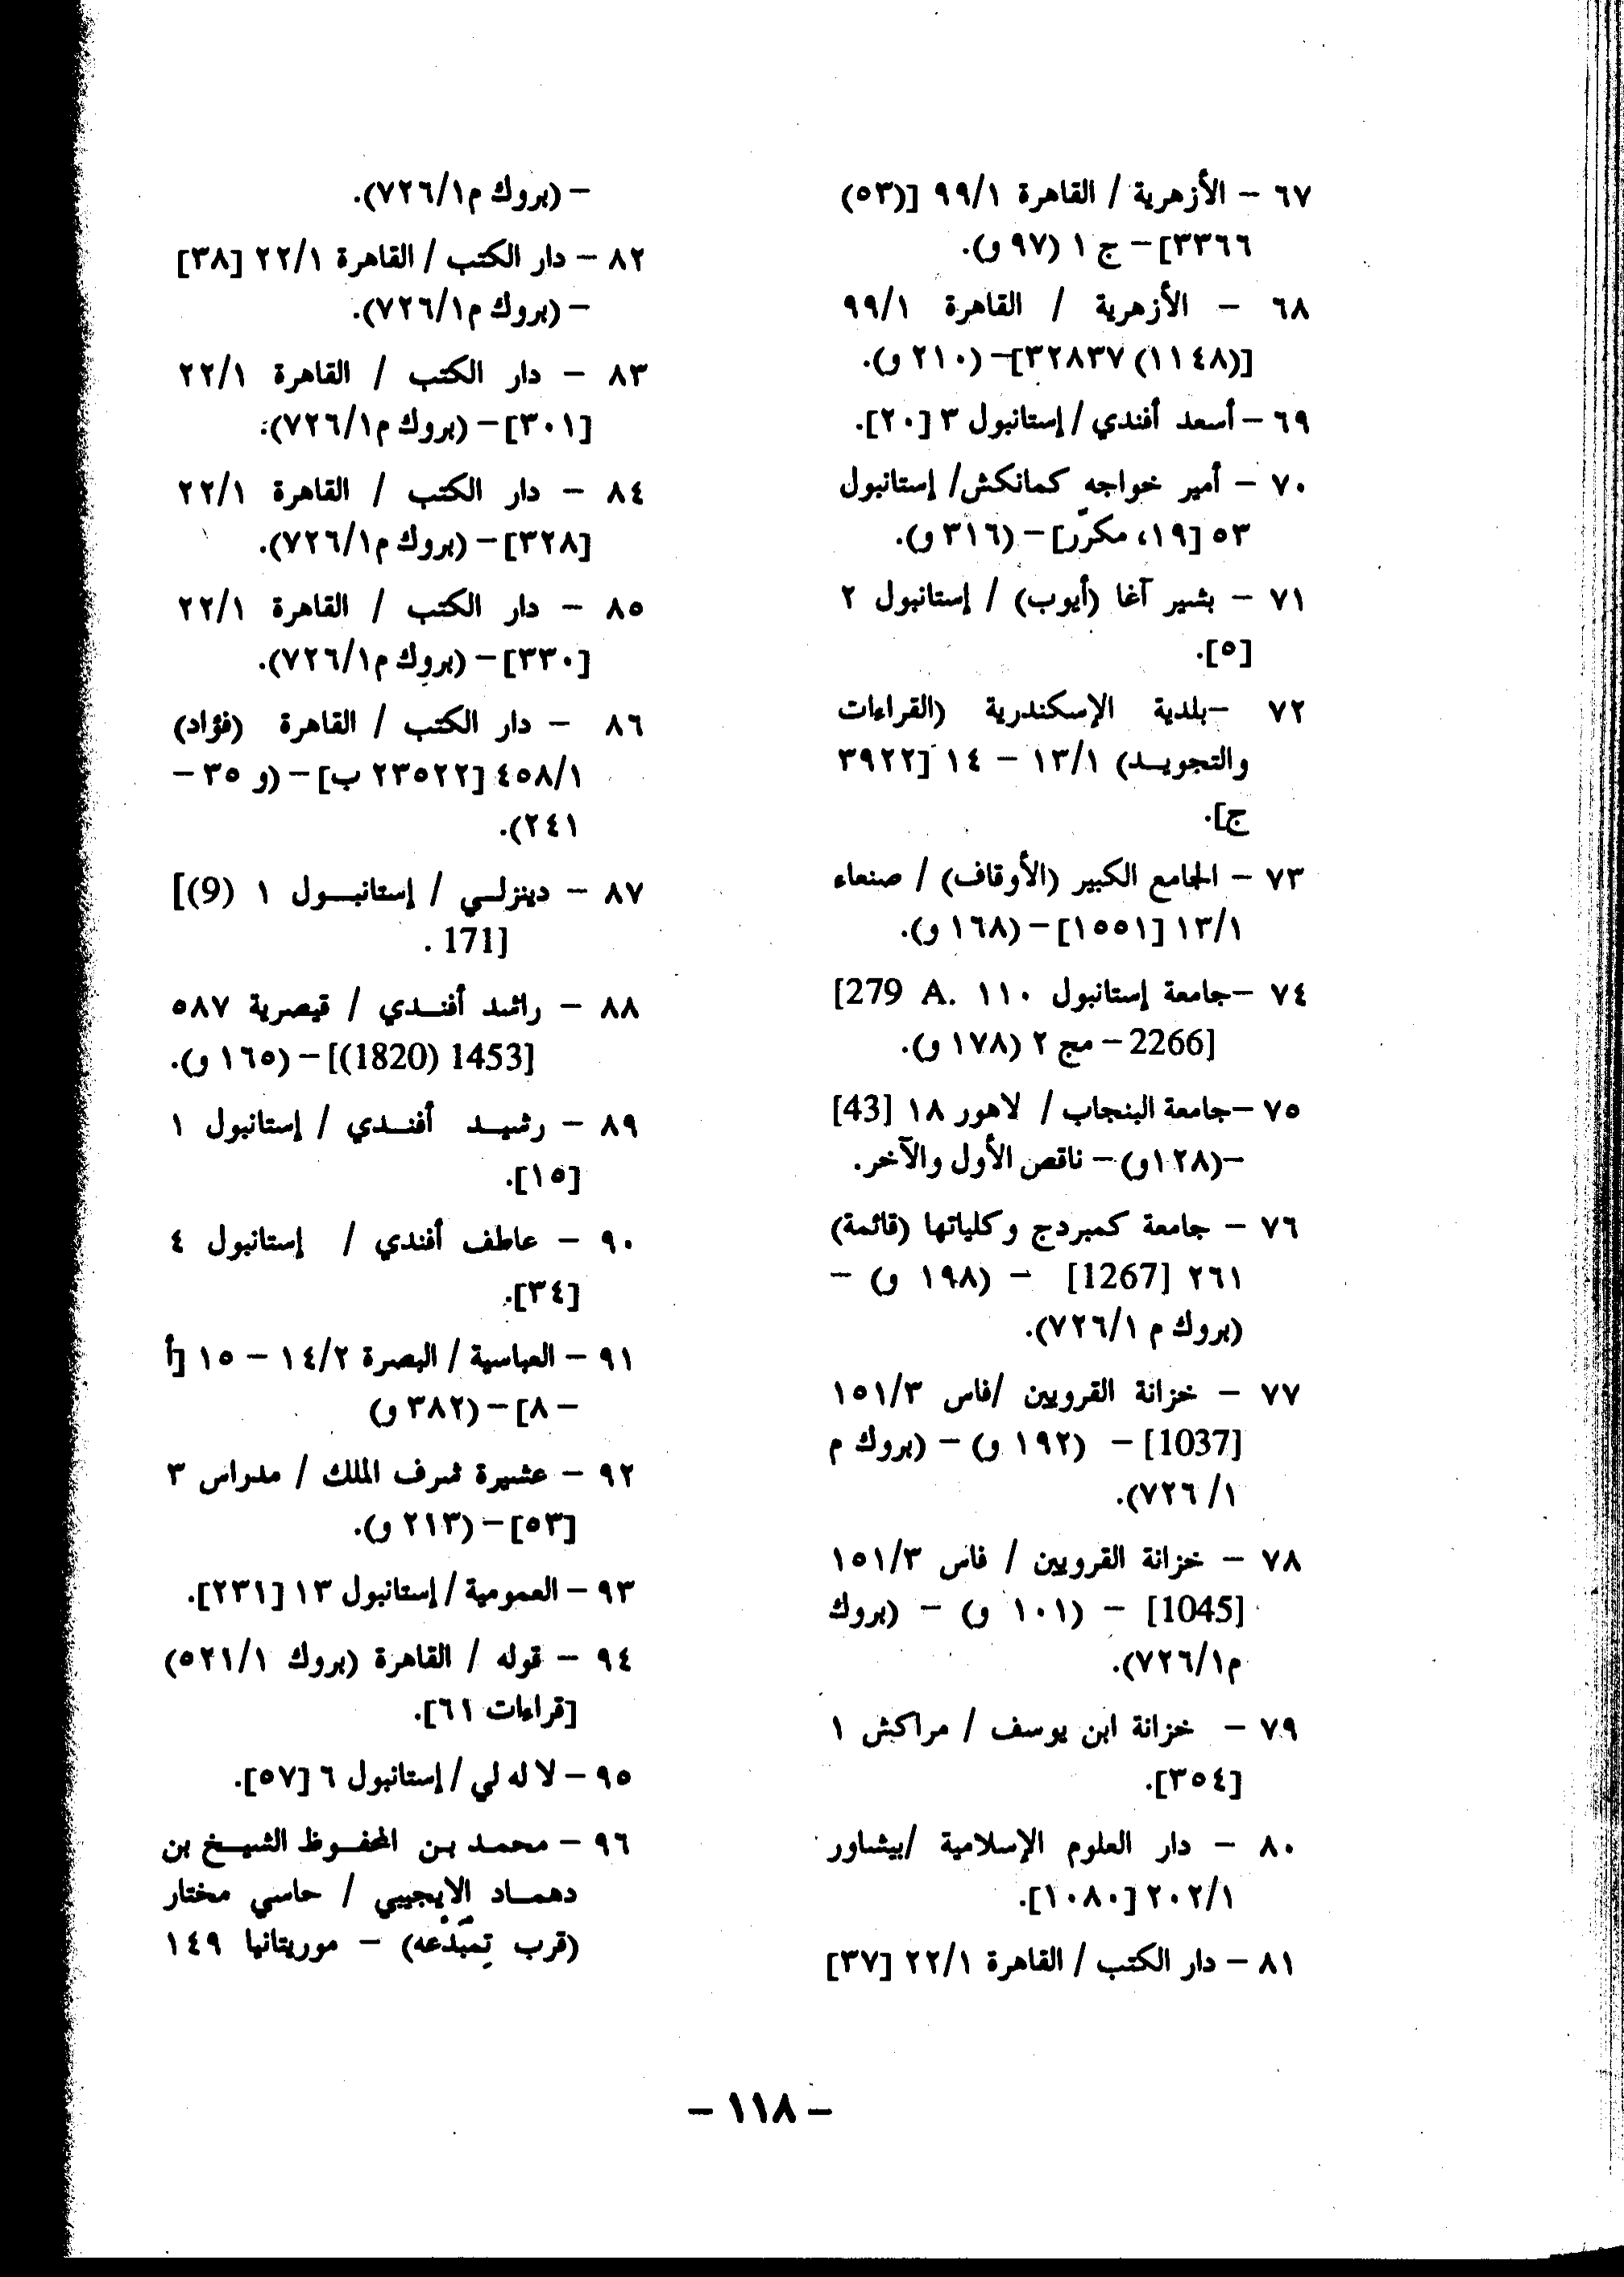 ٦٧ – الأزهرية / القاهرة ٩٩/١ [(٥٣)
٣٣٦٦] – ج ١ (٩٧ و).
٦٨ – الأزهرية / القاهرة ٩٩/١
[(١١٤٨) ٣٢٨٣٧] – (٢١٠ و).
٦٩ – أسعد أفندي / إستانبول ٣ [٢٠].
٧٠ – أمير خواجه كمانكش/ إستانبول
٥٣ [١٩، مكرّر] – (٣١٦ و).
٧١ – بشير آغا (أيوب) / إستانبول ٢
[٥].
٧٢ –بلدية الإسكندرية (القراءات
والتجويـد) ١٣/١ – ١٤ [٣٩٢٢
ج].
٧٣ – الجامع الكبير (الأوقاف) / صنعاء
١٣/١ [١٥٥١] – (١٦٨ و).
٧٤ –جامعة إستانبول ١١٠ [279 A.
2266] – مج ٢ (١٧٨ و).
٧٥ –جامعة البنجاب / لاهور ١٨ [43]
–(١٢٨و) – ناقص الأول والآخر.
٧٦ – جامعة كمبردج وكلياتها (قائمة)
٢٦١ [1267] – (١٩٨ و) –
(بروك م ٧٢٦/١).
٧٧ – خزانة القرويين /فاس ١٥١/٣
[1037] – (١٩٢ و) – (بروك م
١/ ٧٢٦).
٧٨ – خزانة القرويين / فاس ١٥١/٣
[1045] – (١٠١ و) – (بروك
م٧٢٦/١).
٧٩ – خزانة ابن يوسف / مراكش ١
[٣٥٤].
٨٠ – دار العلوم الإسلامية /بيشاور
٢٠٢/١ [١٠٨٠].
٨١ – دار الكتب / القاهرة ٢٢/١ [٣٧]
– (بروك م٧٢٦/١).
٨٢ – دار الكتب / القاهرة ٢٢/١ [٣٨]
– (بروك م٧٢٦/١).
٨٣ – دار الكتب / القاهرة ٢٢/١
[٣٠١] – (بروك م٧٢٦/١).
٨٤ – دار الكتب / القاهرة ٢٢/١
[٣٢٨] – (بروك م٧٢٦/١).
٨٥ – دار الكتب / القاهرة ٢٢/١
[٣٣٠] – (بروك م٧٢٦/١).
٨٦ – دار الكتب / القاهرة (فؤاد)
٤٥٨/١ [٢٣٥٢٢ ب] – (و ٣٥ –
٢٤١).
٨٧ – دينزلـي / إستانبـول ١ [(9)
171] .
٨٨ – راشد أفنـدي / قيصرية ٥٨٧
[1453 (1820)] – (١٦٥ و).
٨٩ – رشيـد أفنـدي / إستانبول ١
[١٥].
٩٠ – عاطف أفندي / إستانبول ٤
[٣٤].
٩١ – العباسية / البصرة ١٤/٢ – ١٥ [أ
– ٨] – (٣٨٢ و)
٩٢ – عشيرة شرف الملك / مدراس ٣
[٥٣] – (٢١٣ و).
٩٣ – العمومية / إستانبول ١٣ [٢٣١].
٩٤ – قوله / القاهرة (بروك ٥٢١/١)
[قراءات ٦١].
٩٥ – لا له لي / إستانبول ٦ [٥٧].
٩٦ – محمـد بـن المحفـوظ الشيـخ بن
دهمـاد الإيجيبي / حاسي مختار
(قرب تمبدعه) – موريتانيا ١٤٩
– ١١٨ –